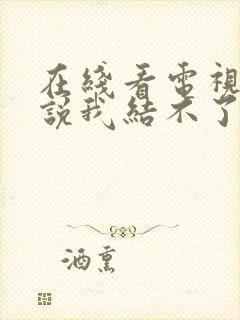 在綫看電視
說我結不了
酒熏